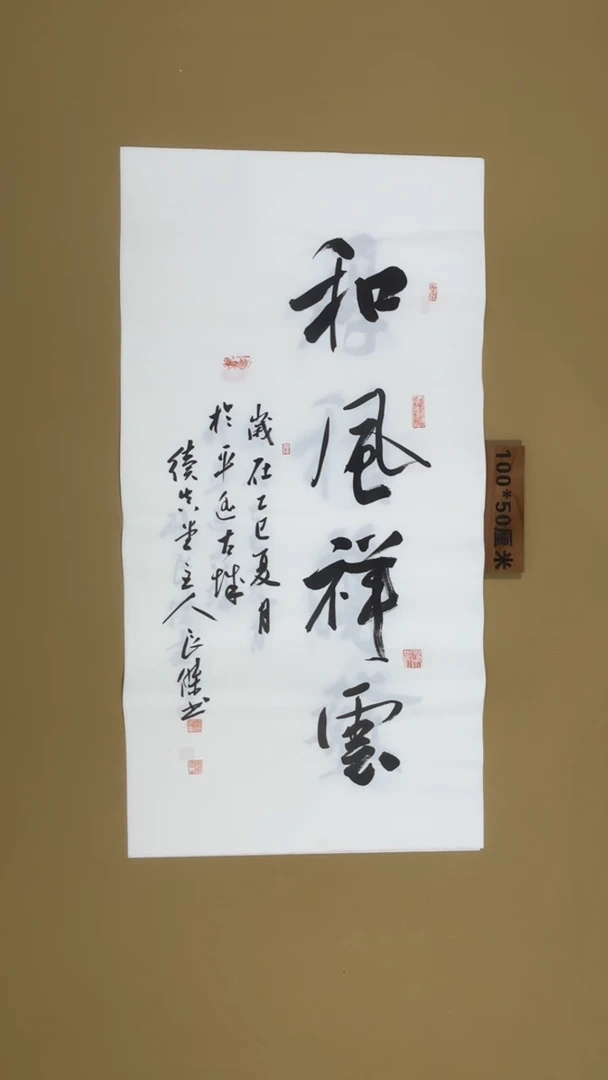 和風祥雲
歲在乙巳夏月
於平遙古城
續真堂主人良傑书
100*50厘米